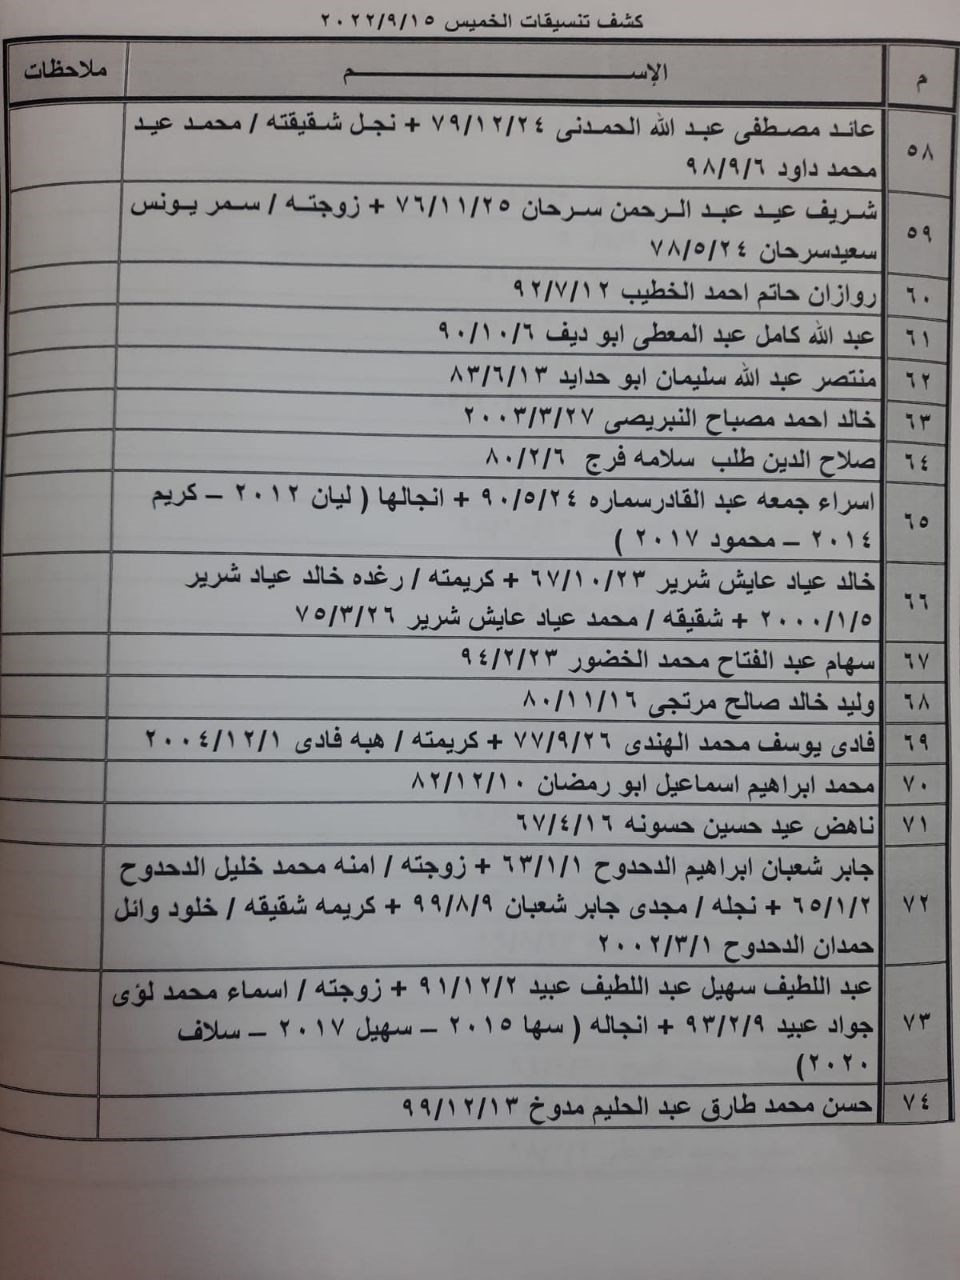 كشف تنسيقات الخميس ٢٠٢٢/٩/١٥
م الإســـــــــــــــــــــم ملاحظات
٥٨ عائد مصطفى عبد الله الحمدنى ٧٩/١٢/٢٤ + نجل شقيقته / محمد عيد
محمد داود ٩٨/٩/٦
٥٩ شريف عيد عبد الرحمن سرحان ٧٦/١١/٢٥ + زوجته / سمر يونس
سعيدسرحان ٧٨/٥/٢٤
٦٠ روازان حاتم احمد الخطيب ٩٢/٧/١٢
٦١ عبد الله كامل عبد المعطى ابو ديف ٩٠/١٠/٦
٦٢ منتصر عبد الله سليمان ابو حدايد ٨٣/٦/١٣
٦٣ خالد احمد مصباح النبريصى ٢٠٠٣/٣/٢٧
٦٤ صلاح الدين طلب سلامه فرج ٨٠/٢/٦
٦٥ اسراء جمعه عبد القادرسماره ٩٠/٥/٢٤ + انجالها ( ليان ٢٠١٢ – كريم
٢٠١٤ – محمود ٢٠١٧ )
٦٦ خالد عياد عايش شرير ٦٧/١٠/٢٣ + كريمته / رغده خالد عياد شرير
٢٠٠٠/١/٥ + شقيقه / محمد عياد عايش شرير ٧٥/٣/٢٦
٦٧ سهام عبد الفتاح محمد الخضور ٩٤/٢/٢٣
٦٨ وليد خالد صالح مرتجى ٨٠/١١/١٦
٦٩ فادى يوسف محمد الهندى ٧٧/٩/٢٦ + كريمته / هبه فادى ٢٠٠٤/١٢/١
٧٠ محمد ابراهيم اسماعيل ابو رمضان ٨٢/١٢/١٠
٧١ ناهض عيد حسين حسونه ٦٧/٤/١٦
٧٢ جابر شعبان ابراهيم الدحدوح ٦٣/١/١ + زوجته / امنه محمد خليل الدحدوح
٦٥/١/٢ + نجله / مجدى جابر شعبان ٩٩/٨/٩ + كريمه شقيقه / خلود وائل
حمدان الدحدوح ٢٠٠٢/٣/١
٧٣ عبد اللطيف سهيل عبد اللطيف عبيد ٩١/١٢/٢ + زوجته / اسماء محمد لؤى
جواد عبيد ٩٣/٢/٩ + انجاله ( سها ٢٠١٥ – سهيل ٢٠١٧ – سلاف
٢٠٢٠)
٧٤ حسن محمد طارق عبد الحليم مدوخ ٩٩/١٢/١٣